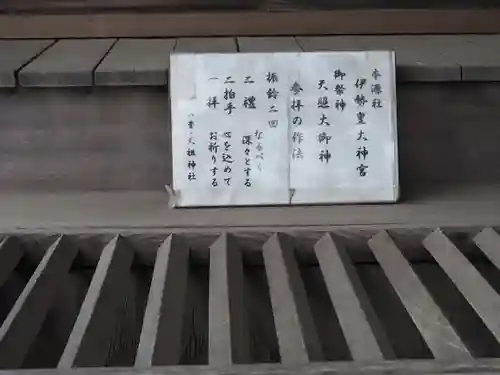 本源社
伊勢皇大神宮
御祭神
天照大御神
参拝の作法
振鈴二回
なるべく
二禮 深々とする
二拍手 心を込めて
一拝 お祈りする
天祖神社